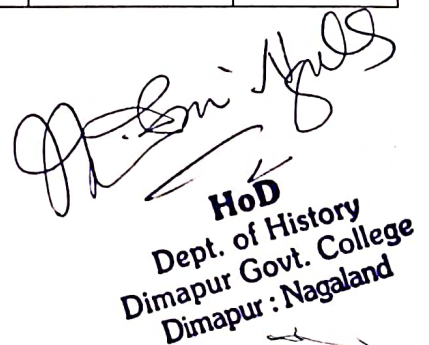 HoD
Dept. of History
Dimapur Govt. College
Dimapur : Nagaland